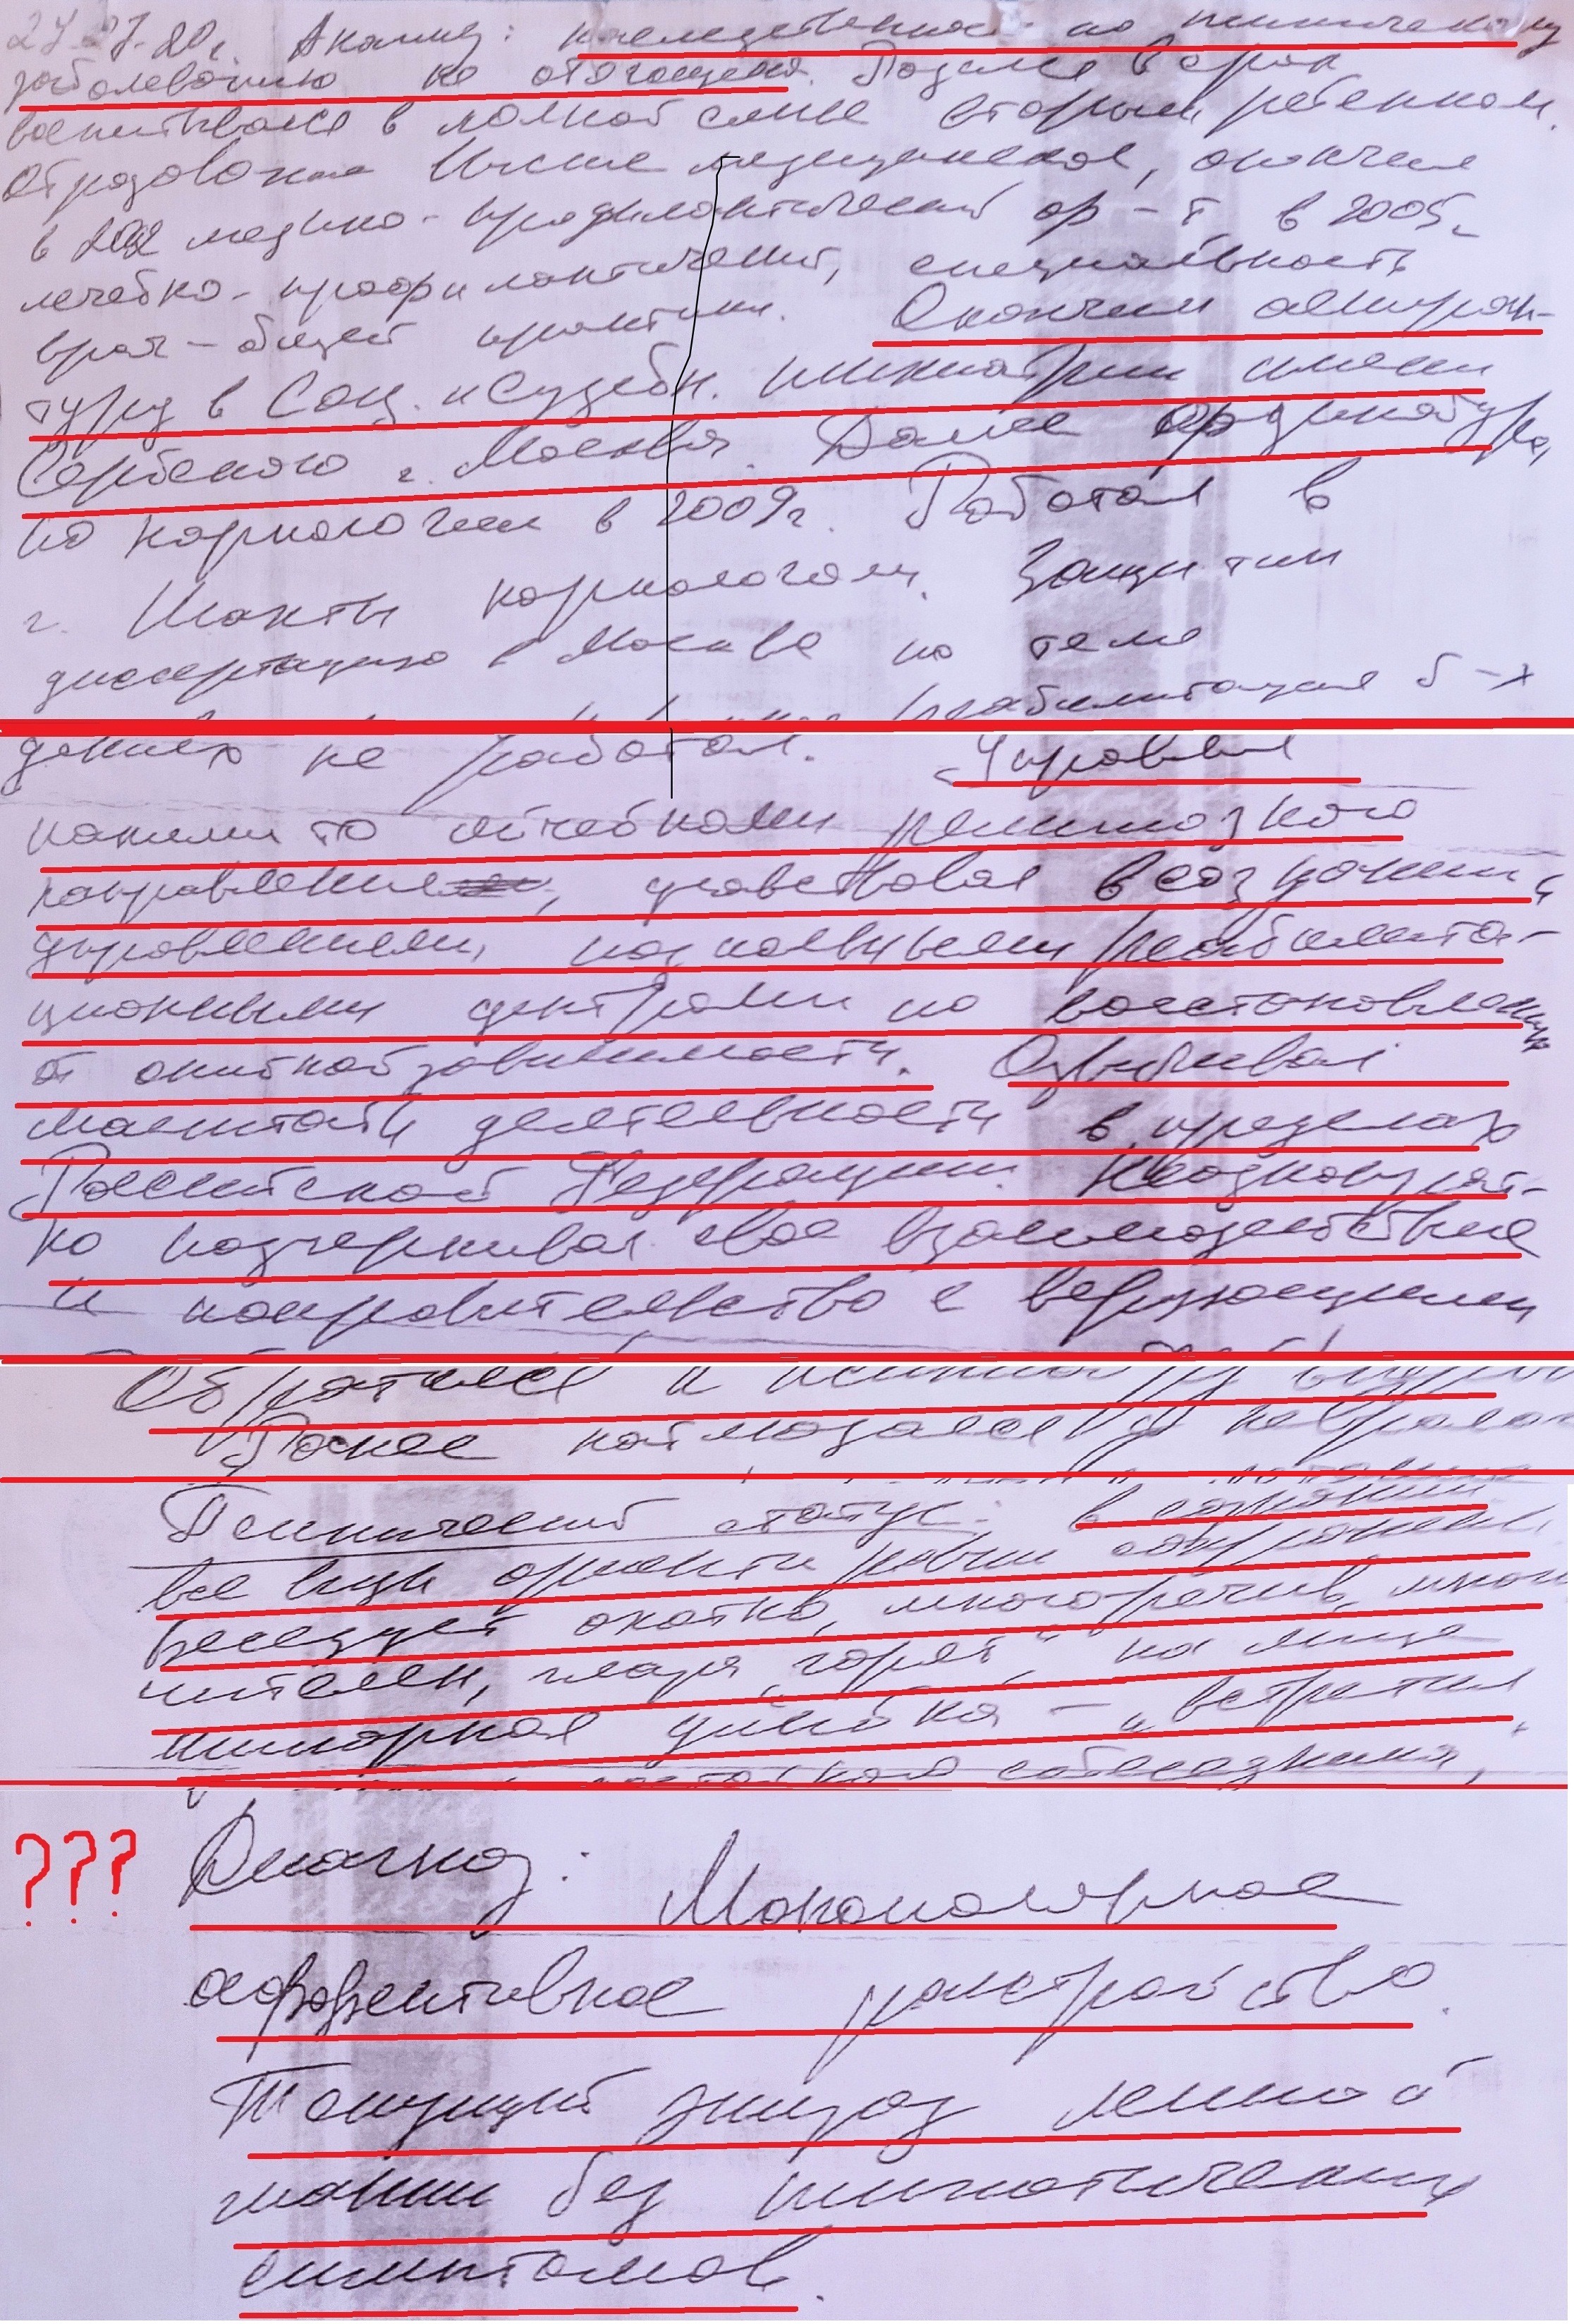 27.07.20г. Анамнез: наследственность по психическому
заболеванию не отягощена. Родился в срок
воспитывался в полной семье вторым ребенком.
Образование высшее медицинское, окончил
в медико-профилактический ф-т в 2005г
лечебно-профилактический, специальность
врач-общей практики. Окончил аспиран-
туру в Соц. и Судебн. психиатрии имени
Сербского г. Москва. Далее ординатура
по наркологии в 2009г. Работал в
г. Шахты наркологом. Защитил
диссертацию в Москве по теме
реабилитация б-х
не работал. Управлял
какими то ячейками религиозного
направления, участвовал в создании,
управлением, реабилита-
ционными центрами по восстановлению
от опийной зависимости. Озвучивал
масштабы деятельности в пределах
Российской Федерации. Неоднократ-
но подчеркивал свое взаимодействие
и покровительство с верующими
Обратился к психиатру
Ранее наблюдался у невролога
Психический статус: в сознании
все виды ориентировки сохранены,
беседует охотно, многоречив, мно
чителен, глаза "горят", на лице
улыбка – "встретил
собеседника,"
??? Диагноз: Монополярное
аффективное расстройство.
Текущий эпизод легкой
мании без психотических
симптомов.